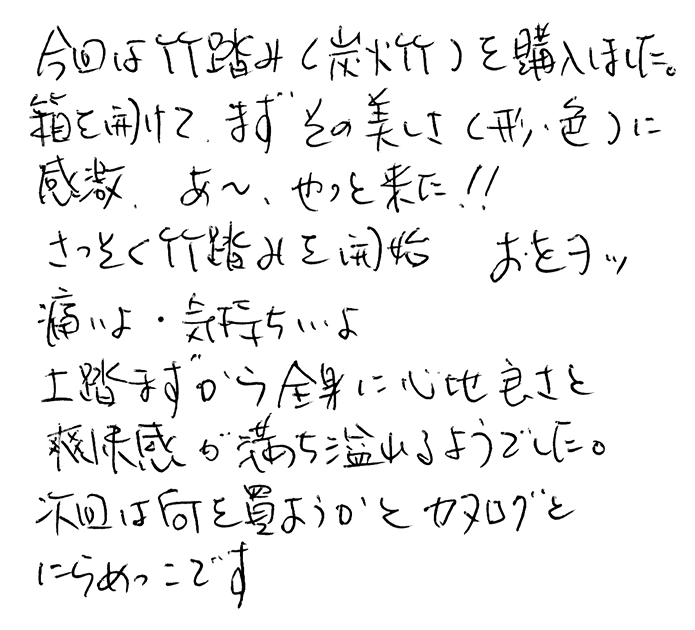 今回は竹踏み(炭火竹)を購入しました。
箱を開けて、まずその美しさ(形・色)に
感激、あ〜、やっと来た!!
さっそく竹踏みを開始 おをヲッ
痛いよ・気持ちいいよ
土踏まずから全身に心地良さと
爽快感が満ち溢れるようでした。
次回は何を買ようかとカタログと
にらめっこです